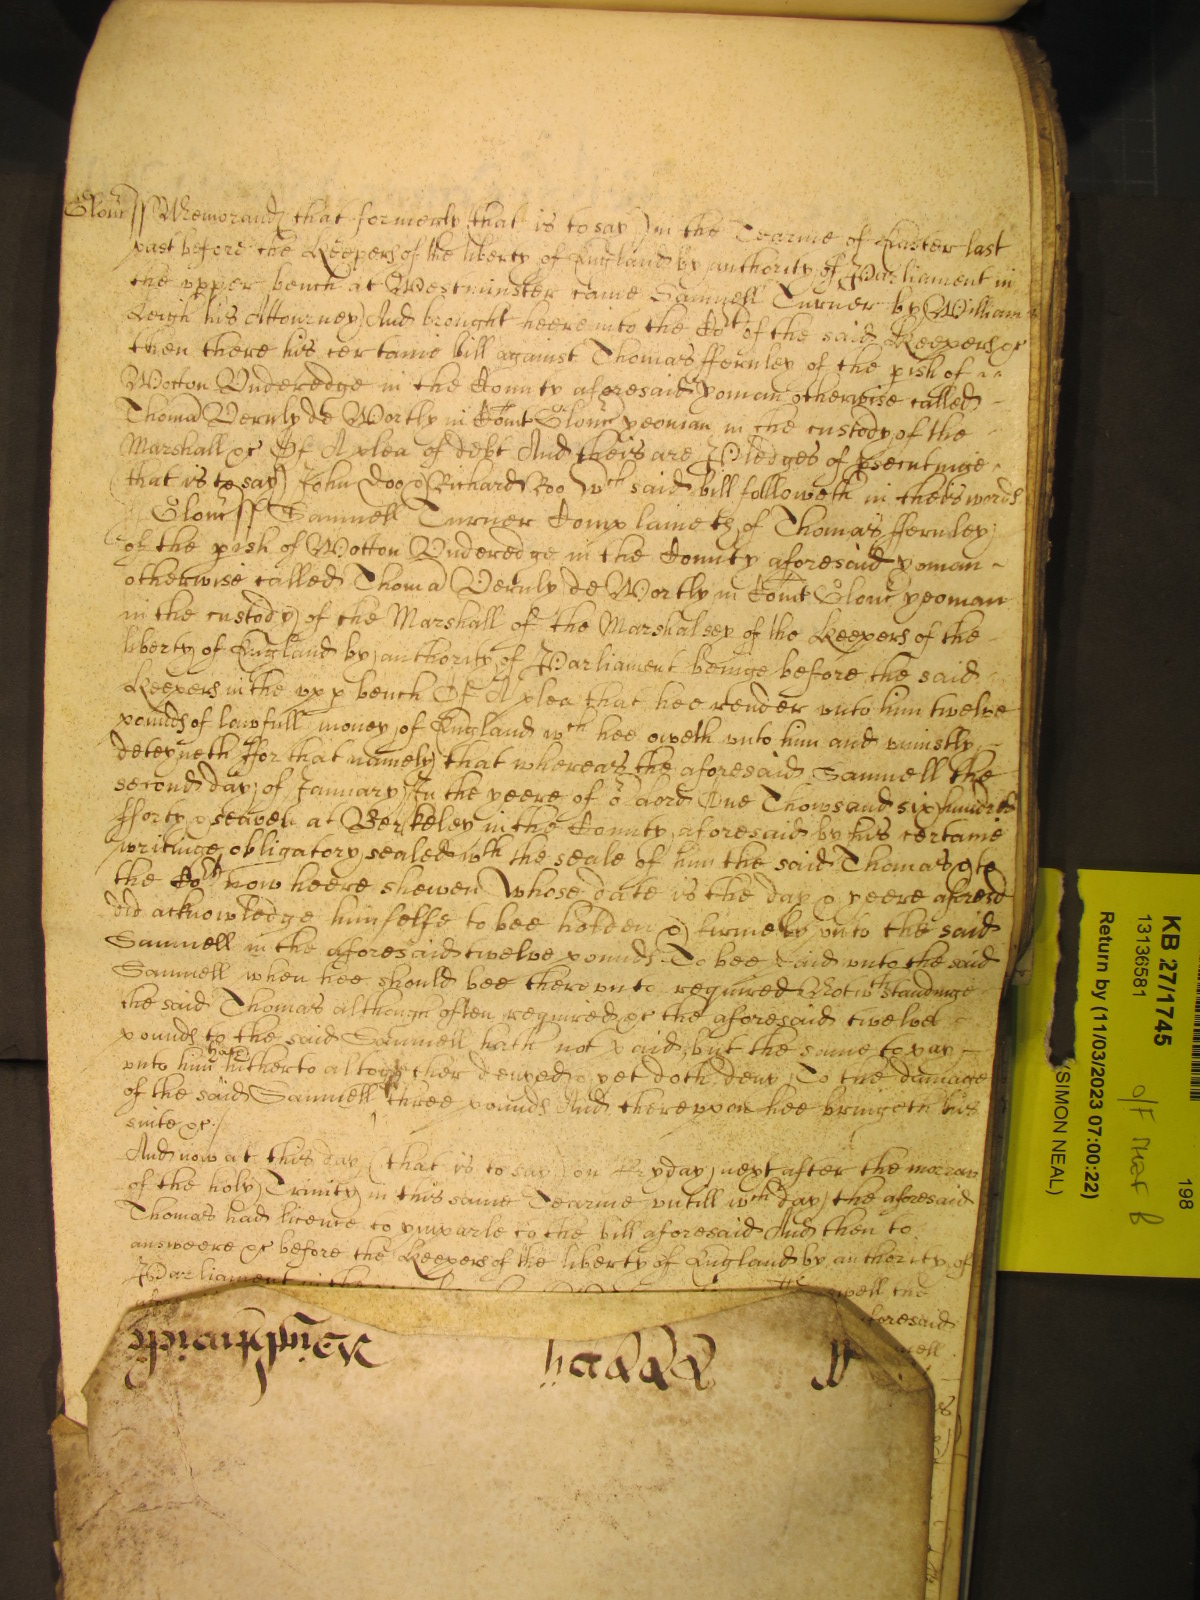 Glouc ss Memorand that formerly that is to say in the Tearme of Easter last
past before the Keepers of the liberty of England by authority of Parliament in
the upper bench at Westminster came Samuell Turner by William
Leigh his Attourney And brought heere into the Cort of the said Keepers &c
then there his certaine bill against Thomas Ffernley of the pish of
Wotton Underedge in the County aforesaid yoman otherwise called
Thoma Vernly de Wortly in Comt Glouc yeoman in the custody of the
Marshall &c Of A plea of debt And theis are Pledges of psecutinge
that is to say John Doo & Richard Roo Wch said bill followeth in theis words
Glouc ss Samuell Turner Complaineth of Thomas Ffernley
of the pish of Wotton Underedge in the County aforesaid yoman
otherwise called Thoma Vernly de Wortly in Comt Glouc yeoman
in the custody of the Marshall of the Marshalsey of the Keepers of the
liberty of England by authority of Parliament beinge before the said
Keepers in the upp bench Of A plea that hee render unto him twelve
pounds of lawfull money of England wch hee oweth unto him and uniustly
deteyneth Ffor that namely that whereas the aforesaid Samuell the
second day of January In the yeere of or Lord One Thowsand six hundred
fforty & seaven at Berkeley in the County aforesaid by his certaine
writinge obligatory sealed wth the seale of him the said Thomas & to
the Cort now heere shewen Whose date is the day & yeere aforesd
did acknowledge himselfe to bee holden & firmely unto the said
Samuell in the aforesaid twelve pounds To bee paid unto the said
Samuell when hee should bee thereunto required Notwthstandinge
the said Thomas although often required &c the aforesaid twelve
pounds to the said Samuell hath not paid but the same to pay
unto him hath hitherto altogether denyed & yet doth deny To the damage
of the said Samuell three pounds And thereupon hee bringeth his
suite &c
And now at this day that is to say on Fryday next after the morrow
of the holy Trinity in this same Tearme untill wch day the aforesaid
Thomas had licence to imparle to the bill aforesaid And then to
answeere &c before the Keepers of the liberty of England by authority of
Parliament in the well the
aforesaid
KB 27/1745
13136581
198
Return by (11/03/2023 07:00:22)
(SIMON NEAL)